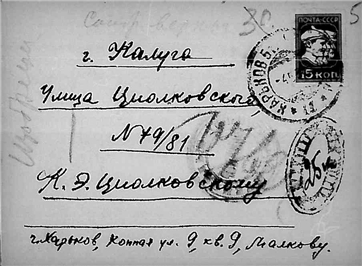 30
ПОЧТА СССР
15 КОП.
ХАРЬКОВ
г. Калуга
Улица Циолковского
N 79/81
К. Э. Циолковскому
г. Харьков, Конная ул. 9, кв. 9, Малкову.